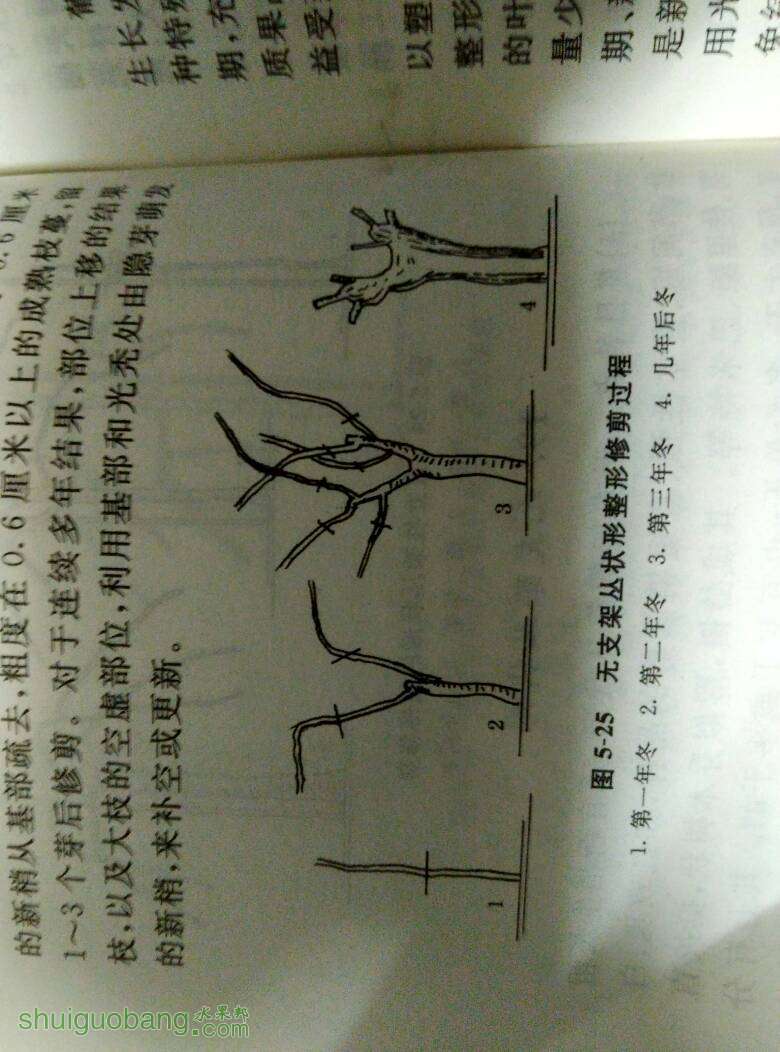 葡
生长发
种特殊
期,充
质果
益受
以塑
整形
的叶
量少
期、
是新
用光
0.6厘米
的新梢从基部疏去,粗度在0.6厘米以上的成熟枝蔓,留
1～3个芽后修剪。对于连续多年结果,部位上移的结果
枝,以及大枝的空虚部位,利用基部和光秃处由隐芽萌发
的新梢,来补空或更新。
1
2
3
4
图5-25 无支架丛状形整形修剪过程
1. 第一年冬 2. 第二年冬 3. 第三年冬 4. 几年后冬
shuiguobang.com
水果邦